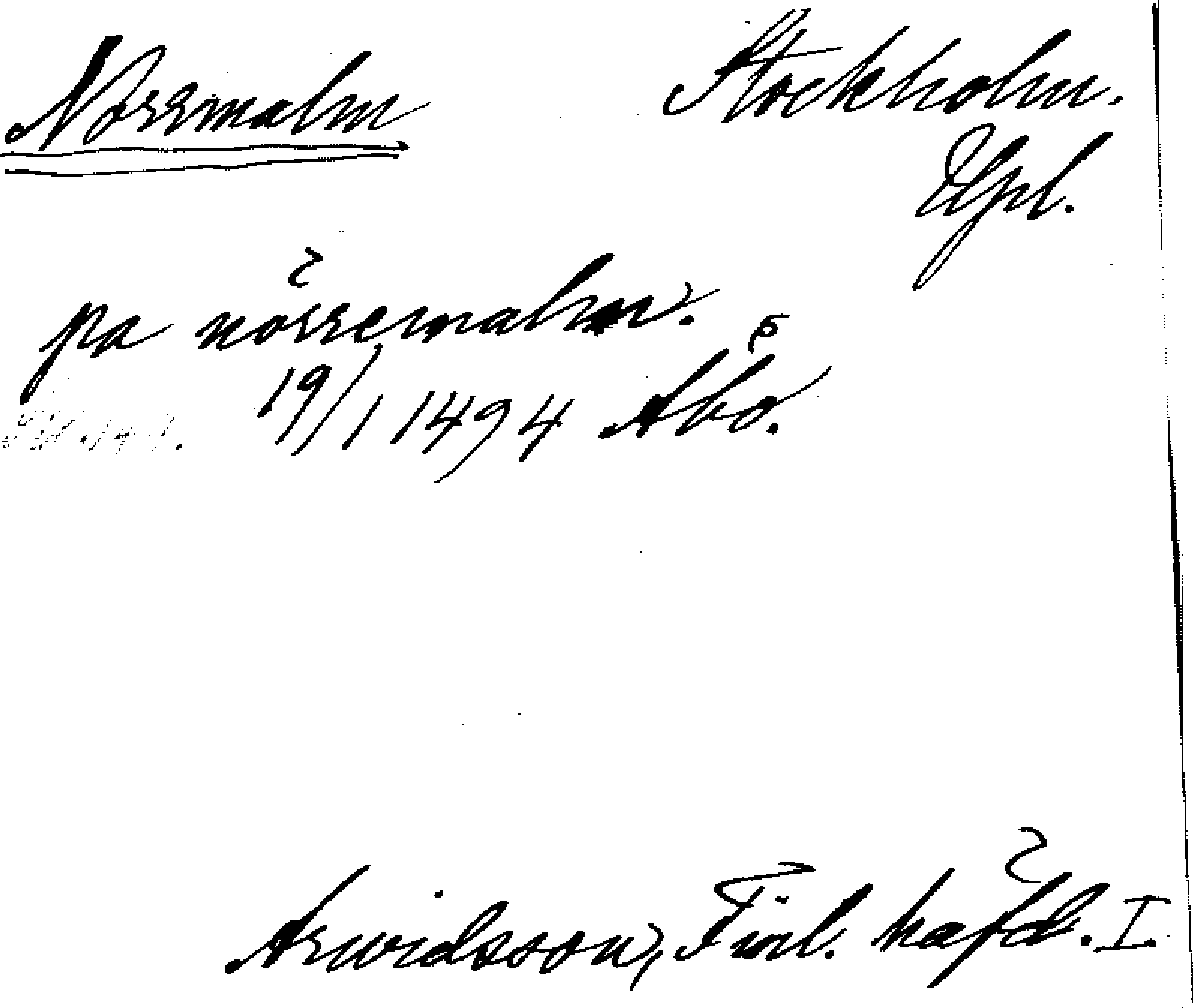 Norrmalm
Stockholm.
Upl.
pa norremalm.
19/1 1494 Åbo.
Arwidsson, Finl. häfd. I.